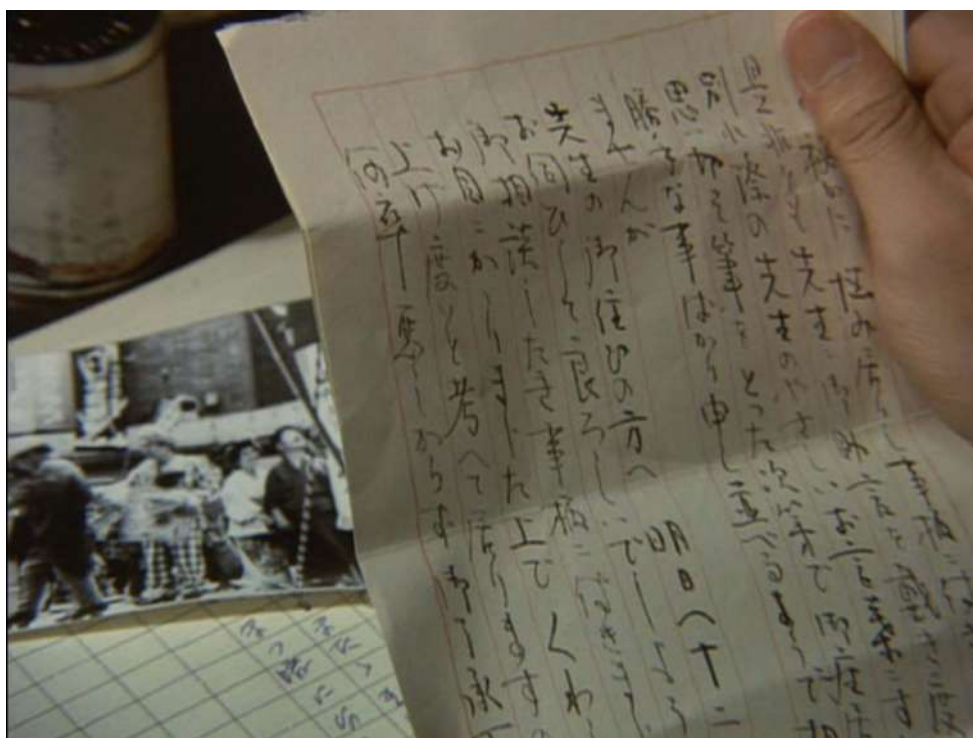 秘かに 悩み居りし事柄に付き
是非とも先生に御助言を戴き度
別れ際の先生のやさしいお言葉にす
思い切って筆をとった次第で御座居
勝手な事ばかり申し並べるようで相
ませんが 明日(十二
先生の御住ひの方へ
お伺ひして良ろしいでしょう
御相談したき事柄に付きまして
お目にかゝりました上でくわし
上げ度いと考へて居りますの
何卒悪しからず御了承